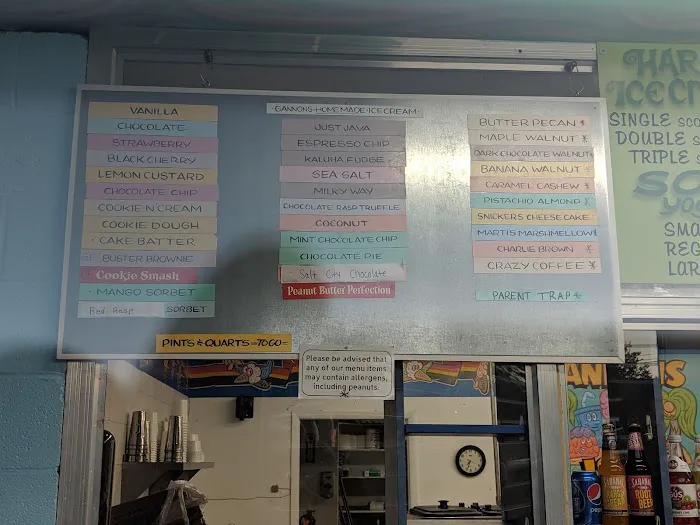 GANNONS·HOMEMADE·ICE CREAM·
VANILLA
CHOCOLATE
STRAWBERRY
BLACK CHERRY
LEMON CUSTARD
CHOCOLATE CHIP
COOKIE N' CREAM
COOKIE DOUGH
CAKE BATTER
BUSTER BROWNIE
Cookie Smash
MANGO SORBET
Red Rasp SORBET
JUST JAVA
ESPRESSO CHIP
KALUHA FUDGE
SEA SALT
MILKY WAY
CHOCOLATE RASP TRUFFLE
COCONUT
MINT CHOCOLATE CHIP
CHOCOLATE PIE
Salt City Chocolate
Peanut Butter Perfection
BUTTER PECAN *
MAPLE WALNUT *
DARK CHOCOLATE WALNUT *
BANANA WALNUT *
CARAMEL CASHEW *
PISTACHIO ALMOND *
SNICKERS CHEESECAKE
MARTIS MARSHMELLOW *
CHARLIE BROWN *
CRAZY COFFEE *
PARENT TRAP *
PINTS & QUARTS - TO GO -
Please be advised that
any of our menu items
may contain allergens,
including peanuts.
*
HAR
ICE CR
SINGLE SCO
DOUBLE S
TRIPLE
SO
YO
SMA
REG
LAR
AN
S
pepsi
SARANAC
ROOT
BEER